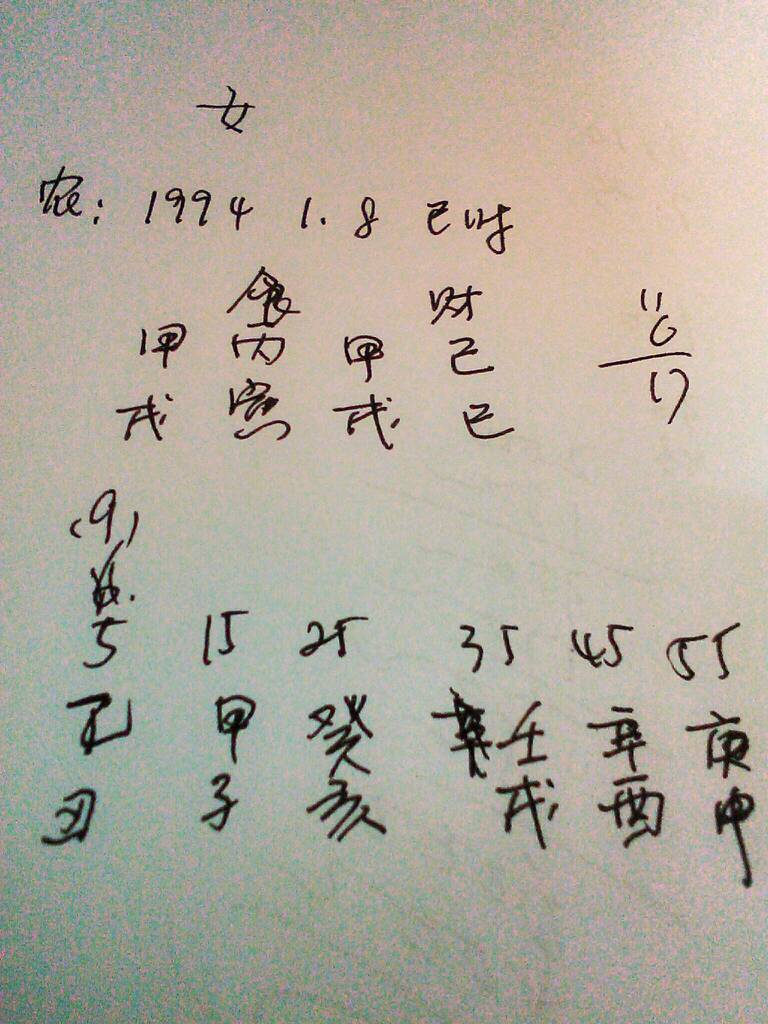 女
农: 1994 1.8 巳时
食 财
甲 丙 甲 己
戌 寅 戌 巳
(9)
5 15 25 35 45 55
乙 甲 癸 壬 辛 庚
丑 子 亥 戌 酉 申